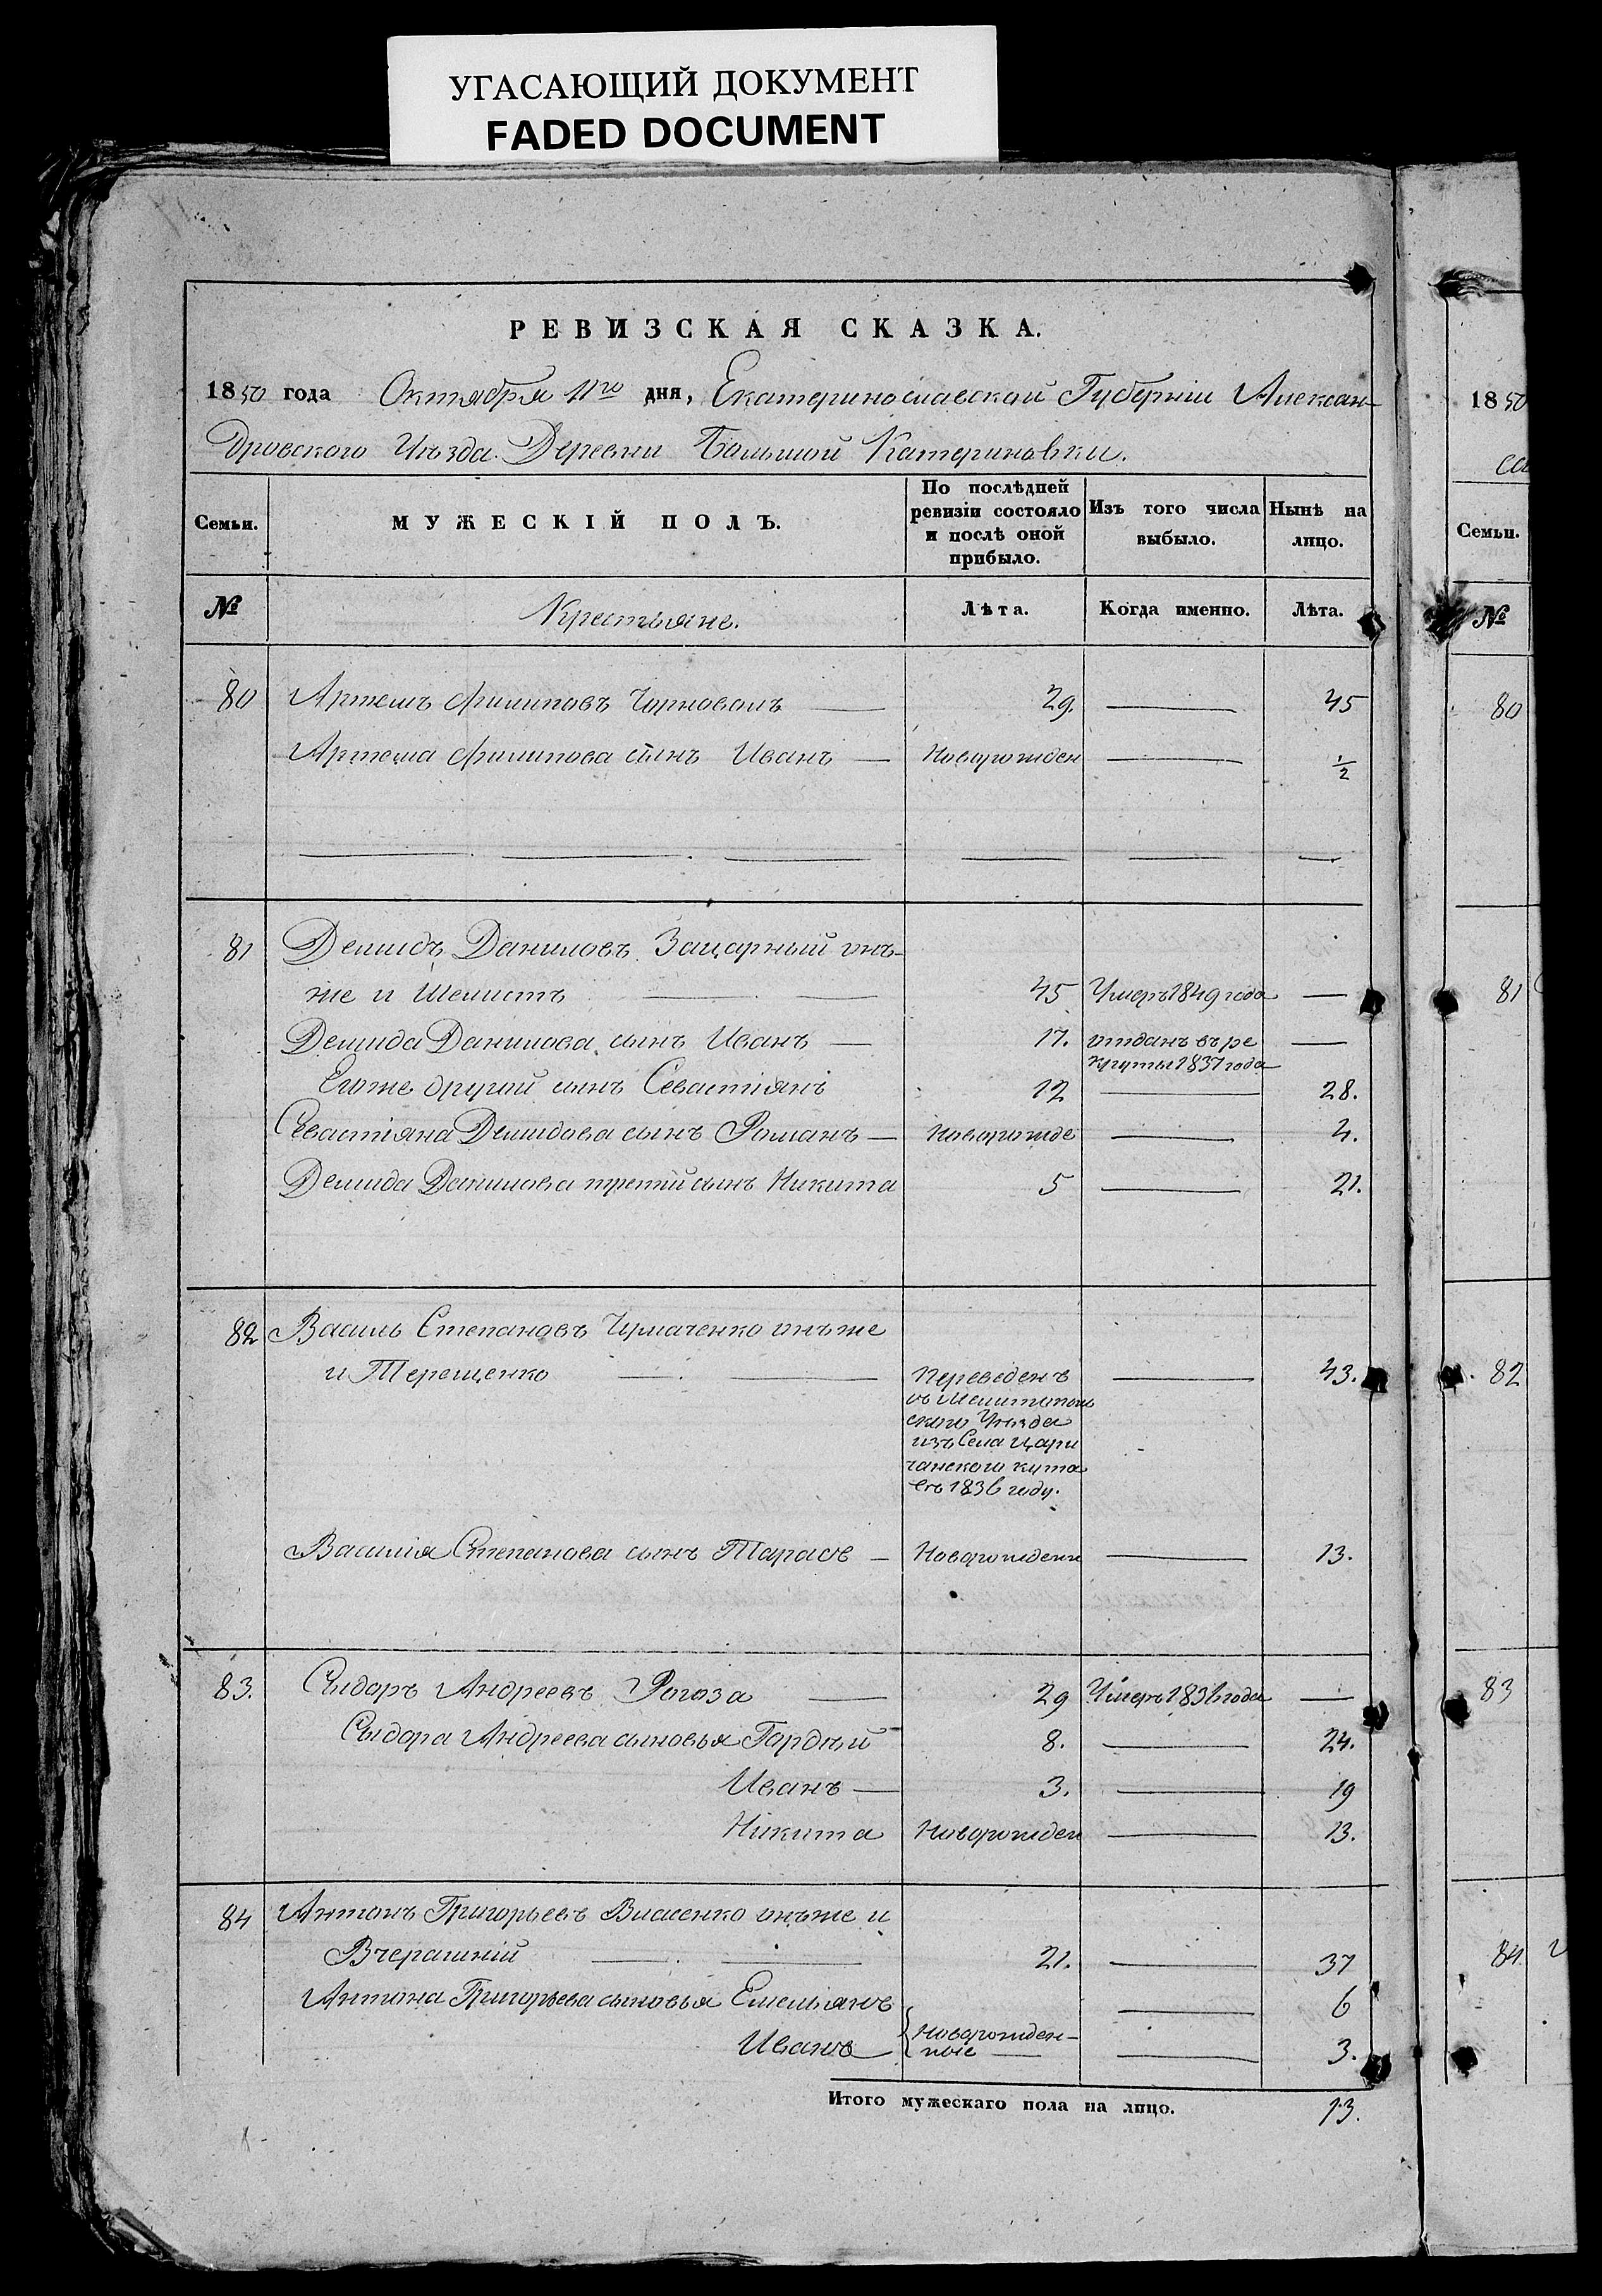 УГАСАЮЩИЙ ДОКУМЕНТ
FADED DOCUMENT
РЕВИЗСКАЯ СКАЗКА.
1850 года Октября 11го дня, Екатеринославской Губерніи Алексан-
дровского Уѣзда Деревни Большой Катериновки.
Семьи. МУЖЕСКІЙ ПОЛЪ. По послѣдней ревизіи состояло и послѣ оной прибыло. Изъ того числа выбыло. Нынѣ на лицо.
№ Крестьяне. Лѣта. Когда именно. Лѣта.
80 Артемъ Филиповъ 29. 45
Артема Филипова сынъ Иванъ Новорожден 1/2
81 Демидъ Даниловъ онъ-
же и 45 Умеръ 1849 года
Демида Данилова сынъ Иванъ 17. отданъ въ ре
круты 1837 года
Егоже другой сынъ Севастіянъ 12 28.
Севастіяна Демидова сынъ Романъ Новорожде 4.
Демида Данилова третій сынъ Никита 5 21.
82 Василь Степановъ онъ же
и Терещенко Переведенъ 43.
съ Мелитополь
ского Уѣзда
изъ Села Цари
чанского кута
въ 1836 году.
Василія Степанова сынъ Тарасъ Новорожденн 13.
83. Сидоръ Андреевъ Рогоза 29 Умеръ 1836 года
Сидора Андреева сыновья Гордѣй 8. 24.
Иванъ 3. 19
Никита Новорожден 13.
84 Антонъ Григорьевъ Власенко онъ же и
Вчерашній 21. 37
Антона Григорьева сыновья Емельянъ 6
Новорожден-
Иванъ ные 3.
Итого мужескаго пола на лицо. 13.
1850
Семьи.
№
80
81
82
83
84